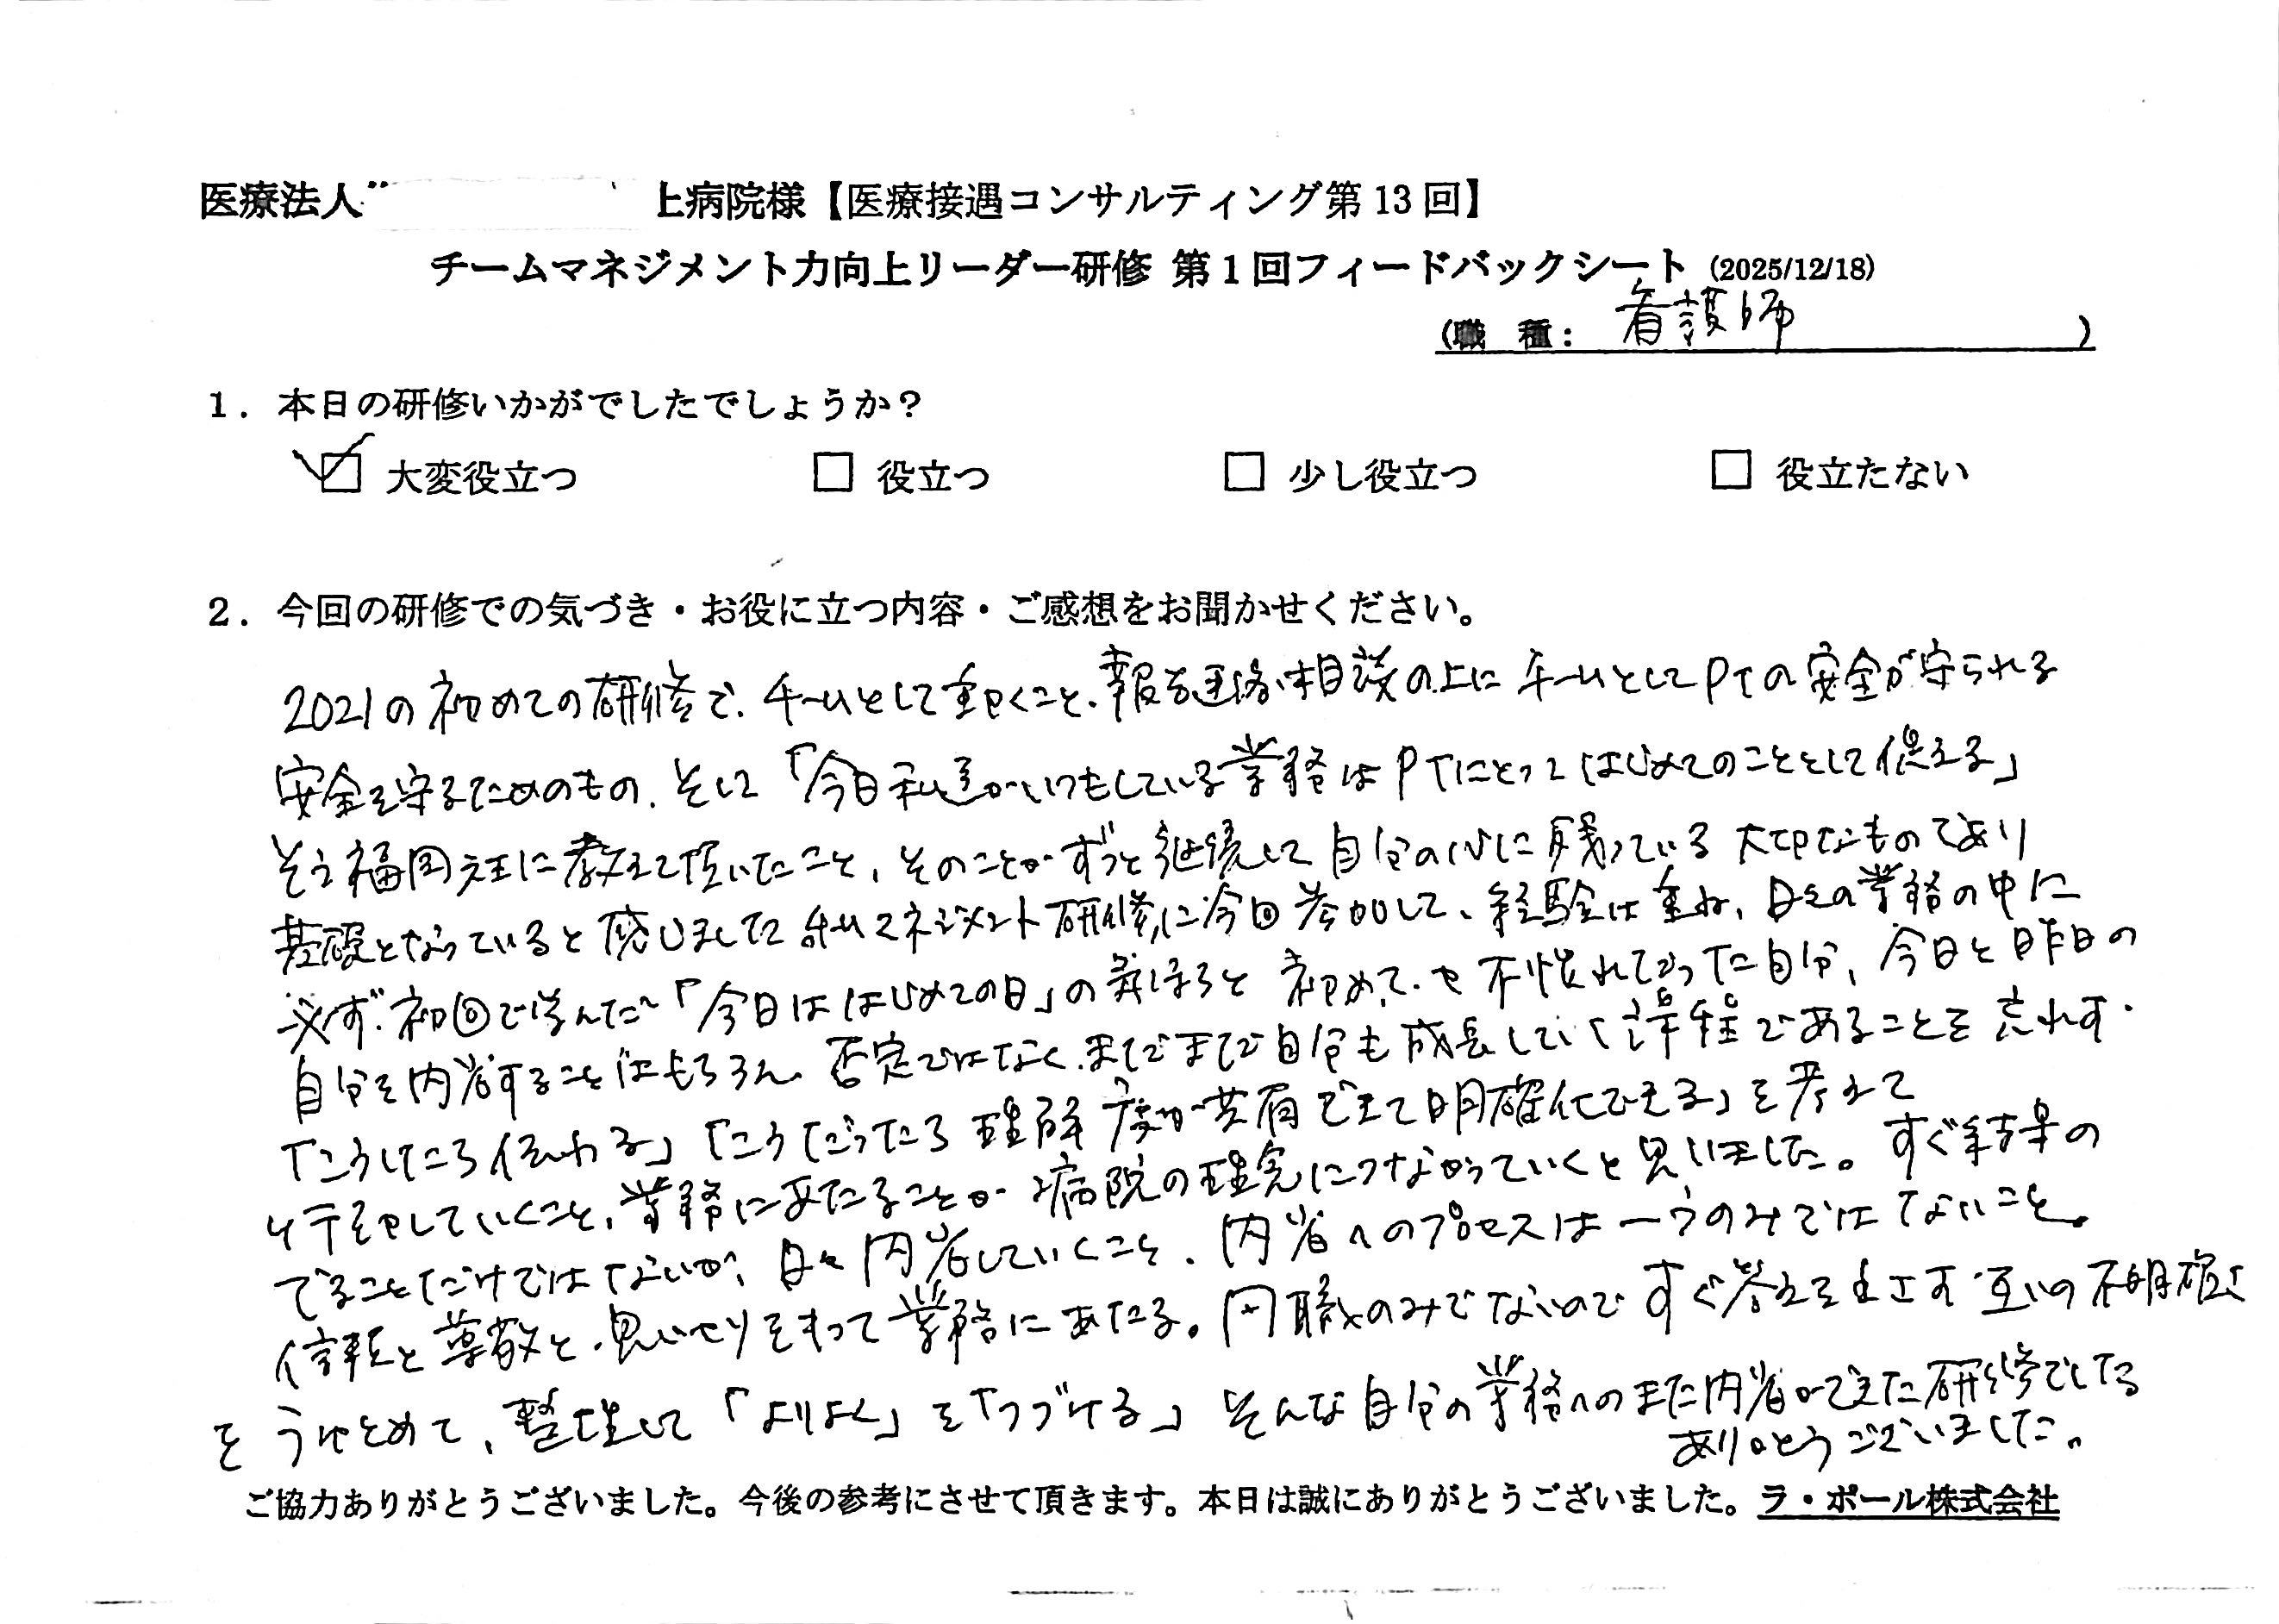 医療法人 上病院様【医療接遇コンサルティング第13回】
チームマネジメント力向上リーダー研修 第1回フィードバックシート (2025/12/18)
(職 種: 看護師 )
1. 本日の研修いかがでしたでしょうか?
大変役立つ 役立つ 少し役立つ 役立たない
2. 今回の研修での気づき・お役に立つ内容・ご感想をお聞かせください。
2021の初めての研修で、チームとして動くこと、報告連絡相談の上にチームとしてPTの安全が守られる
安全を守るためのもの、そして「今日私達がいつもしている業務はPTにとってはじめてのこととして捉える」
そう福岡先生に教えて頂いたこと、そのことがずっと継続して自分の心に残っている大切なものであり
基礎となっていると感じました。チームマネジメント研修に今回参加して、経験は重ね、日々の業務の中に
必ず、初回で学んだ「今日ははじめての日」の 初めて、 不慣れだった自分、今日と昨日の
自分を内省することはもちろん、否定ではなく、まだまだ自分も成長していく課程であることを忘れず
「こうしたら伝わる」「こうだったら理解度が共有できて明確化できる」を考えて
行動していくこと、業務にあたることが病院の理念につながっていくと思いました。すぐ結果の
でることだけではないが、日々内省していくこと、内省へのプロセスは一つのみではないこと。
信頼と尊敬と、思いやりをもって業務にあたる。円職のみでないのですぐ答えを出さず、互いの不明確さ
をうけとめて、整理して「よりよく」を「つづける」そんな自分の業務へのまた内省ができた研修でした
ありがとうございました。
ご協力ありがとうございました。今後の参考にさせて頂きます。本日は誠にありがとうございました。ラ・ポール株式会社